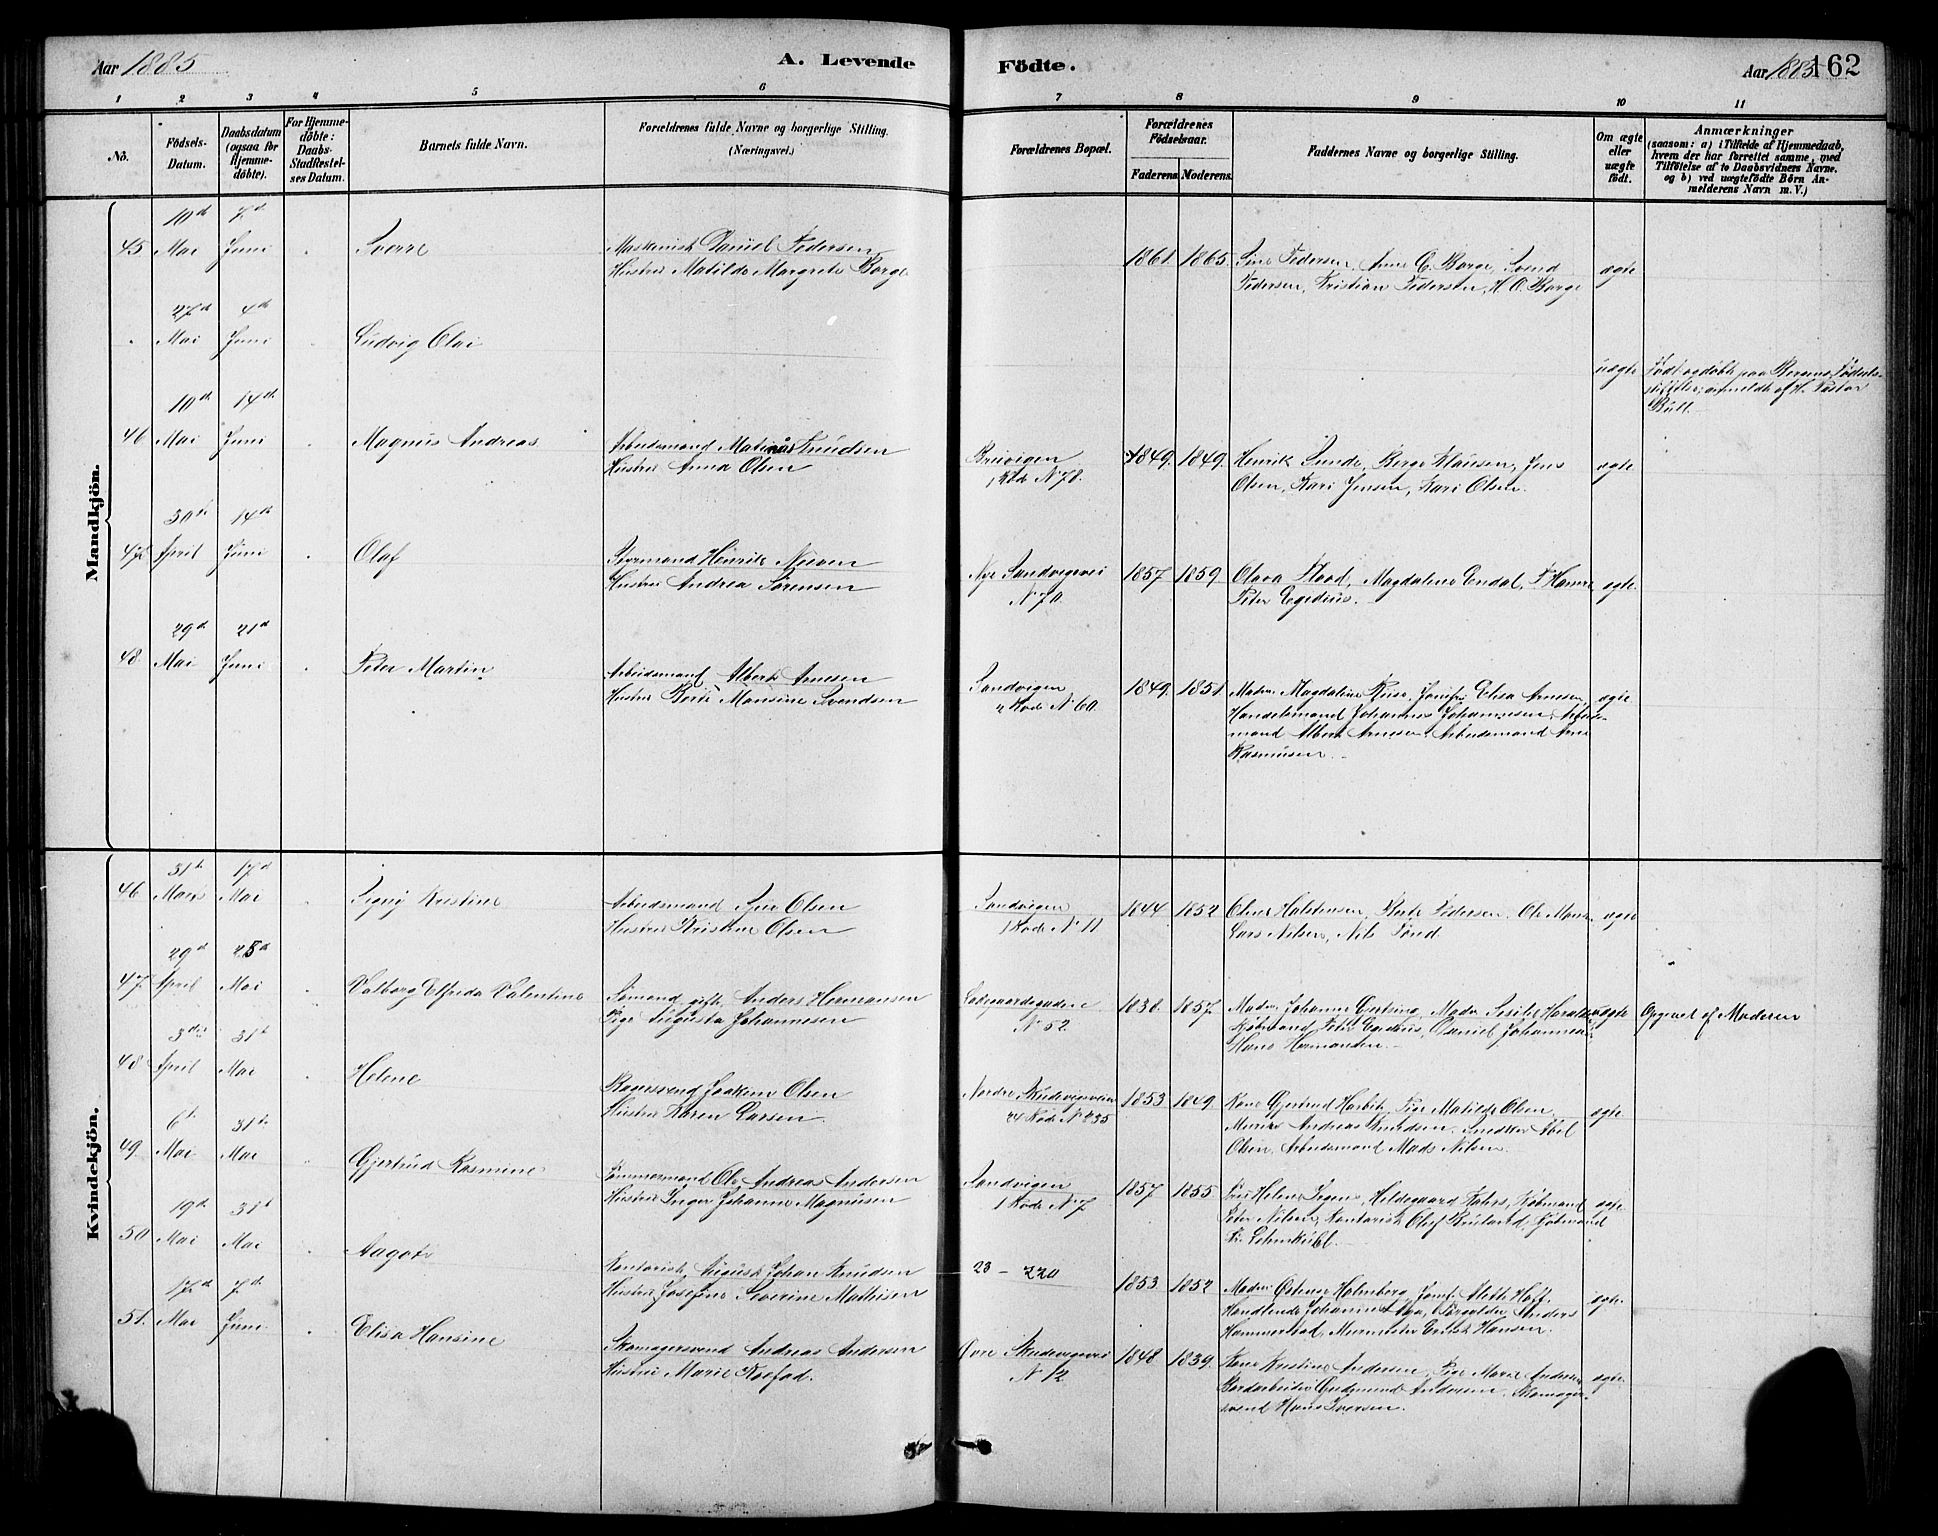 Aar 1885
A. Levende
Födte.
Aar 1885
162
1 2 3 4 5 6 7 8 9 10 11
No.
Födsels-
Datum.
Daabsdatum
(ogsaa for
Hjemme-
döbte).
For Hjemme-
döbte:
Daabs-
Stadfæstel-
ses Datum.
Barnets fulde Navn.
Forældrenes fulde Navne og borgerlige Stilling.
(Næringsvei.)
Forældrenes Bopæl.
Forældrenes
Födselsaar.
Faderens. Moderens.
Faddernes Navne og borgerlige Stilling.
Om ægte
eller
uægte
født.
Anmærkninger
(saasom: a) i Tilfælde af Hjemmedaab,
hvem der har forrettet samme, med
Tilföielse af to Daabsvidners Navne.
og b) ved uægtefödte Börn An-
melderens Navn m. V.)
Mandkjön.
10d 7d
45 Mai Juni Sverre
Maskinist Daniel Pedersen
Hustru Matilde Margrete Borge
1861 1865.
Pedersen, Anne C. Borge, Svend
Pedersen, Kristian Pedersen, H. O. Borge
ægte
27d 4d
Mai Juni Ludvig Olai
uægte
Født og døbt paa Bergens Fødsels-
stiftelse; anmeldt af Hr. Pastor
Bull
10d 14d
46 Mai Juni Magnus Andreas
Arbeidsmand Knudsen
Hustru Anna Olsen
1 Rode N 78.
1849. 1849.
Henrik Sunde, Berge Klausen, Jens
Olsen, Kari Jensen, Kari Olsen.
ægte
30th 14d
47 April Juni Olaf
Hustru Andrea Sørensen
Nye Sandvigsvei
N 70.
1857 1859
Olava Flood, Magdalene Endal,
Peter Egedius.
ægte
29d 21d
48. Mai Juni Peter Martin
Arbeidsmand Albert Arnesen
Hustru Berte Monsine Svendsen
Sandvigen
2 Rode N 60.
1849. 1851
Madm Magdalene Elisa Arnesen,
Handelsmand Johannes Johannesen, Arbeids-
mand Albert Arnesen, Arbeidsmand Arne
Rasmusen.
ægte
Kvindekjön.
31te 17d
46 Marts Mai Signy Kristine
Arbeidsmand Olsen
Hustru Kristine Olsen
Sandvigen
1 Rode N 11
1844 1852
Halstensen, Berte Pedersen, Ole Mons.
Lars Nilsen, Nils
ægte
29d 25d
47. April Mai Valborg Elfrida Valentine
Sømand gift, Anders Hermansen
Pige Augusta Johannesen
Ladegaardsgaden
N 52.
1830. 1857.
Madm Johanne Madm Sesilie
Kjøbmand Peter Egedius, Daniel Johannesen
Hans Hermansen.
uægte
Opgivet af Moderen
3die 31te
48 April Mai Helene
Bagersvend Joakim Olsen
Hustru Karen Larsen.
Nordre Skudevigsveien
24 Rode N 235
1853 1849.
Kone Gjertrud Pige Matilde Olsen,
Murer Andreas Knudsen, Snedker Abel
Olsen, Arbeidsmand Mads Nilsen
ægte
6te 31te
49. Mai Mai Gjertrud Rasmine
Tømmermand Ole Andreas Andersen
Hustru Inger Johanne Magnusen
Sandvigen
1 Rode N 7
1857 1855
Helene Hildegaard Kjøbmand
Peter Nilsen, Kontorist Olaf Kjøbmand
Fr. Lehmkuhl.
ægte
19d 31te
50. Mai Mai Aagot
Kontorist, August Johan Knudsen
Hustru Josefine Severine Mathisen
23 – 220
1853 1852
Madm Holmberg, Jomf. Alette Hoff,
Handlende Johannes Anders
Hammerstad, Murmester Hansen.
ægte
17d 7d
51. Mai Juni Elisa Hansine
Skomagersvend Andreas Andersen
Hustru Marie
Øvre Skudevigsvei
N 12
1848 1839.
Kone Kristine Andersen, Pige Marie Andersen
Andersen, Skomager-
svend Hans Iversen.
ægte